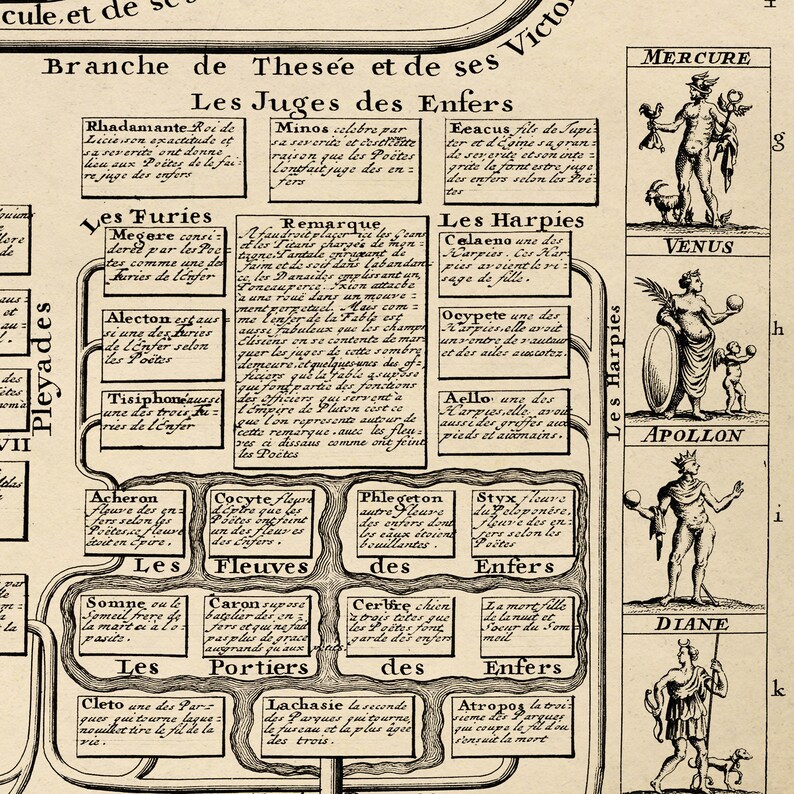 cule, et de ses Victoi
Branche de Thesée et de ses
Les Juges des Enfers
Rhadamante Roi de
Licie, son exactitude et
sa severite ont donne
lieu aux Poëtes de le fai=
re juge des enfers
Minos celebre par
sa severite et c'est pour
raison que les Poëtes
l'ont fait juge des en=
fers
Eeacus fils de Jupi=
ter et d'Egine sa gran=
de severite et son inte=
grite le font estre juge
des enfers selon les Poë=
tes
Les Furies
Megere consi=
derée par les Poe=
tes comme une des
Furies de l'Enfer
Alecton est aus
si une des Furies
de l'Enfer selon
les Poëtes
Tisiphone aussi
une des trois Fu=
ries de l'Enfer
Remarque
Il faudroit placer ici les Geans
et les Titans chargés de mon=
tagne Tantale enrageant de
faim et de soif dans l'abondan=
ce les Danaides emplissant un
Toneau percé. Ixion attaché
a une rouë dans un mouve=
ment perpetuel. Mais com=
me l'enfer de la Fable est
aussi fabuleux que les champs
Elisiens on se contente de mar=
quer les juges de cette sombre
demeure, et quelques-uns des of=
ficiers que la Fable suppose
qui font partie des fonctions
des Officiers qui servent a
l'Empire de Pluton c'est ce
que l'on represente autour de
cette remarque. avec les fleu=
ves ci dissous comme ont feint
les Poëtes
Les Harpies
Celaeno une des
Harpies. Ces Har=
pies avoient le vi=
sage de fille.
Ocypete une des
Harpies, elle avoit
un ventre de vautour
et des ailes aux cotez.
Aello une des
Harpies, elle avoit
aussi des griffes aux
pieds et aux mains.
Les Harpies
Pleyades
VII
Acheron
fleuve des en=
fers selon les
Poëtes, ce fleuve
étoit en Epire.
Cocyte fleuve
d'Epire que les
Poëtes ont feint
un des fleuves
des Enfers.
Phlegeton
autre fleuve
des enfers dont
les eaux étoient
bouillantes.
Styx fleuve
du Peloponése,
fleuve des en=
fers selon les
Poëtes
Les Fleuves des Enfers
Somne ou le
Someil frere de
la mort ci a l'o=
pasite.
Caron supose
batelier des en=
fers et qui ne fait
pas plus de grace
aux grands qu'aux petits.
Cerbre chien
a trois tétes que
les Poëtes font
garde des enfers
La mort fille
de la nuit et
Soeur du Som=
meil
Les Portiers des Enfers
Cleto une des Par=
ques qui tourne la que=
nouille et tire le fil de la
vie.
Lachasie la seconde
des Parques qui tourne
le fuseau et la plus agée
des trois.
Atropos la troi=
sieme des Parques
qui coupe le fil d'ou
s'ensuit la mort
MERCURE
VENUS
APOLLON
DIANE
g
h
i
k